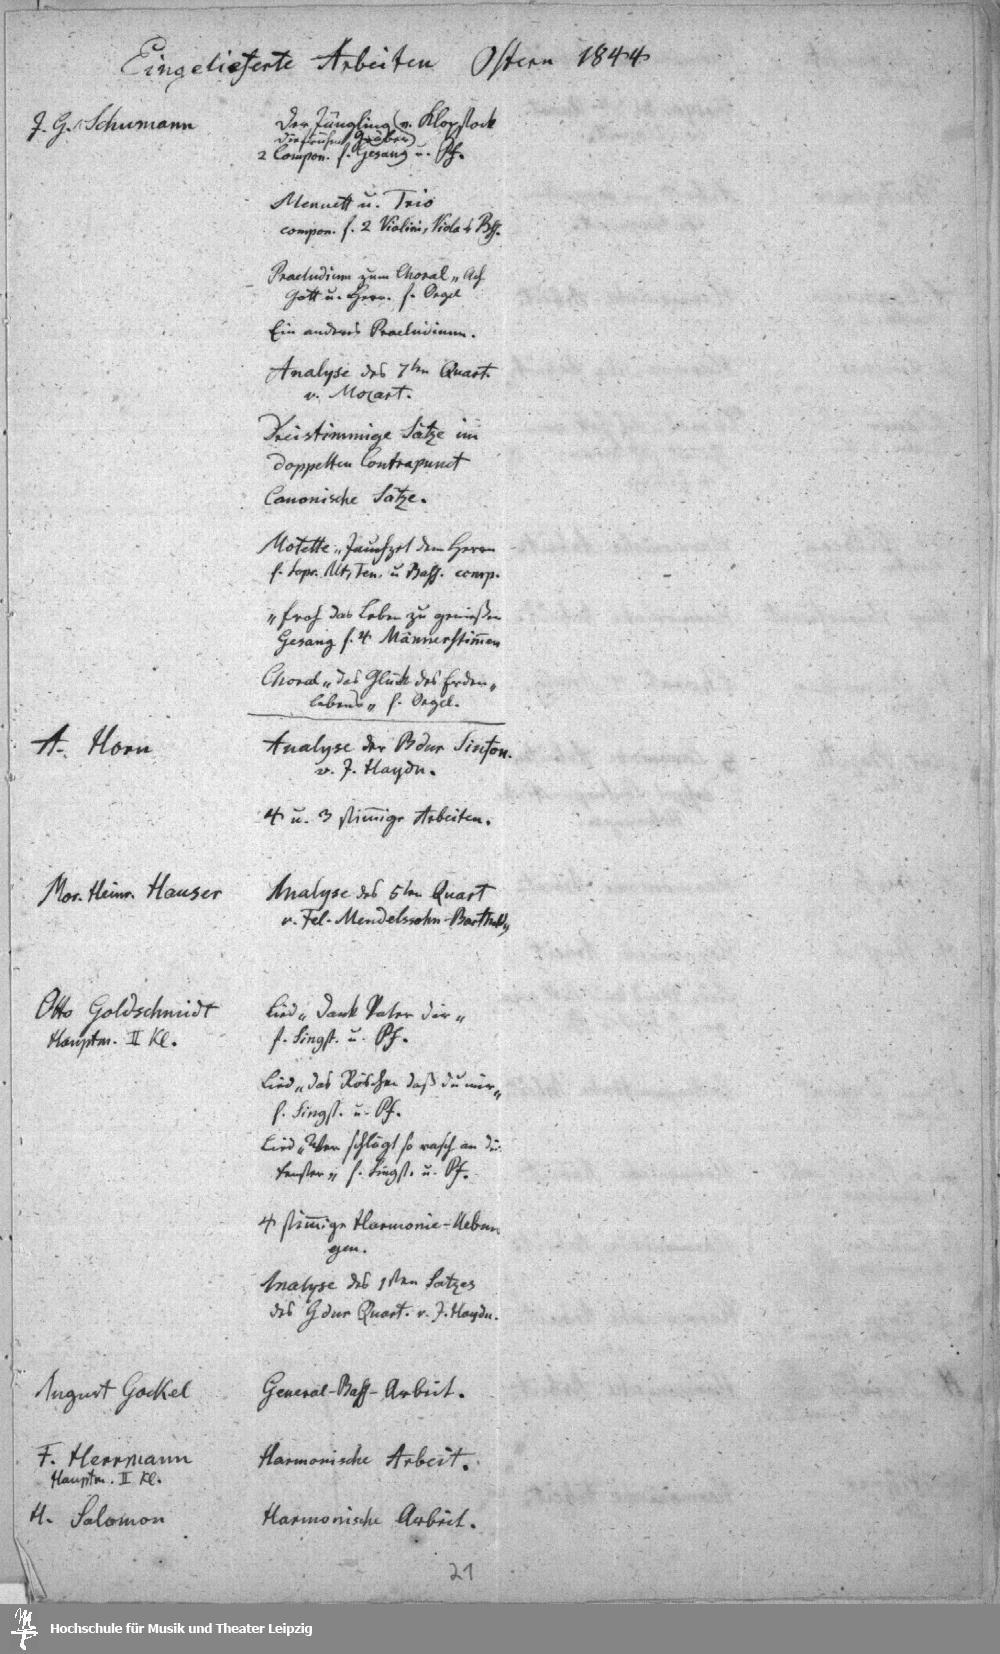 Eingelieferte Arbeiten Ostern 1844
J. G. Schumann
Der Jüngling (v. Klopstock
Die frühen Gräber)
2 Compon. f. Gesang u. Pf.
Menuett u. Trio
compon. f. 2 Violini, Viola & Bss.
Praeludium zum Choral „Ach
Gott u. Herr. f. Orgel
Ein anderes Praeludium.
Analyse des 7ten Quart.
v. Mozart.
Dreistimmige Sätze im
doppelten Contrapunct
Canonische Sätze.
Motette „Jauchzet dem Herrn
f. Sopr. Alt, Ten. u Bass. comp.
„froh das Leben zu genießen
Gesang f. 4 Männerstimmen
Choral „das Glück des Erden-
lebens„ f. Orgel.
A. Horn
Analyse der Bdur Sinfon.
v. J. Haydn.
4 u. 3 stimige Arbeiten.
Mor. Heinr. Hauser
Analyse des 5ten Quart
v. Fel. Mendelssohn-Barthold„
Otto Goldschmidt
Hauptm. II Kl.
Lied „Dank Vater dir„
f. Singst. u. Pf.
Lied „das Röschen daß du mir„
f. Singst. u. Pf.
Lied „Wer schlägt so rasch an die
Fenster„ f. Singst. u. Pf.
4 stimige Harmonie-Uebun
gen.
Analyse des 1sten Satzes
des Gdur Quart. v. J. Haydn.
August Gockel
General-Bass-Arbeit.
F. Herrmann
Hauptm. II Kl.
Harmonische Arbeit.
H. Salomon
Harmonische Arbeit.
21
Hochschule für Musik und Theater Leipzig